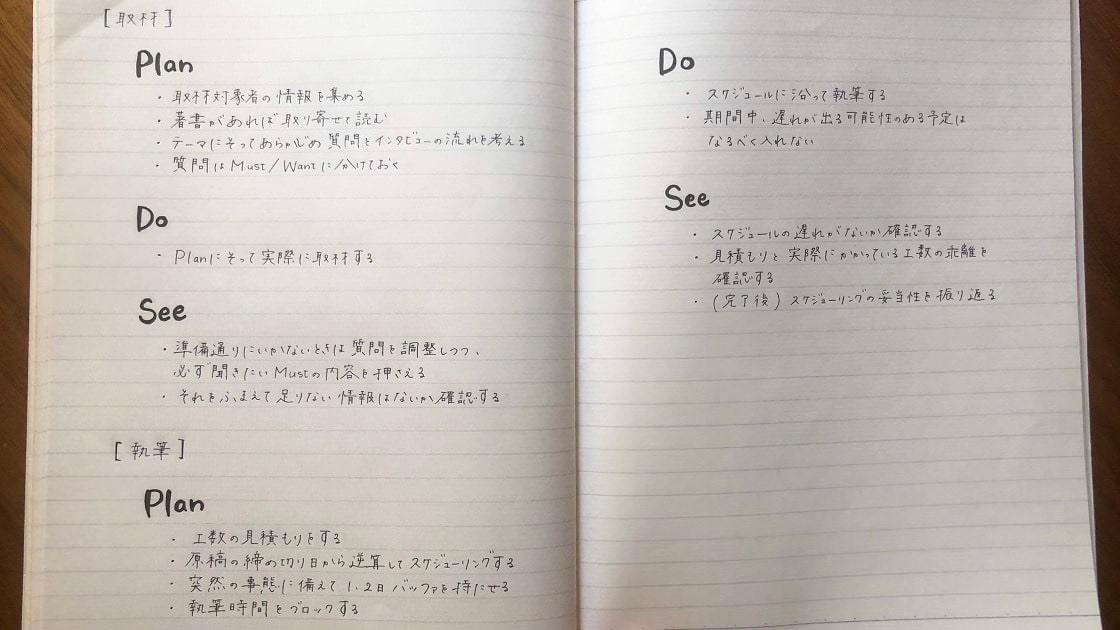 [取材]
Plan
・取材対象者の情報を集める
・著書があれば取り寄せて読む
・テーマにそってあらかじめ質問とインタビューの流れを考える
・質問はMust/Wantに分けておく
Do
・Planにそって実際に取材する
See
・準備通りにいかないときは質問を調整しつつ、
必ず聞きたいMustの内容を押さえる
・それをふまえて足りない情報はないか確認する
[執筆]
Plan
・工数の見積もりをする
・原稿の締め切り日から逆算してスケジューリングする
・突然の事態に備えて1、2日バッファを持たせる
・執筆時間をブロックする
Do
・スケジュールに沿って執筆する
・期間中、遅れが出る可能性のある予定は
なるべく入れない
See
・スケジュールの遅れがないか確認する
・見積もりと実際にかかっている工数の乖離を
確認する
・(完了後)スケジューリングの妥当性を振り返る